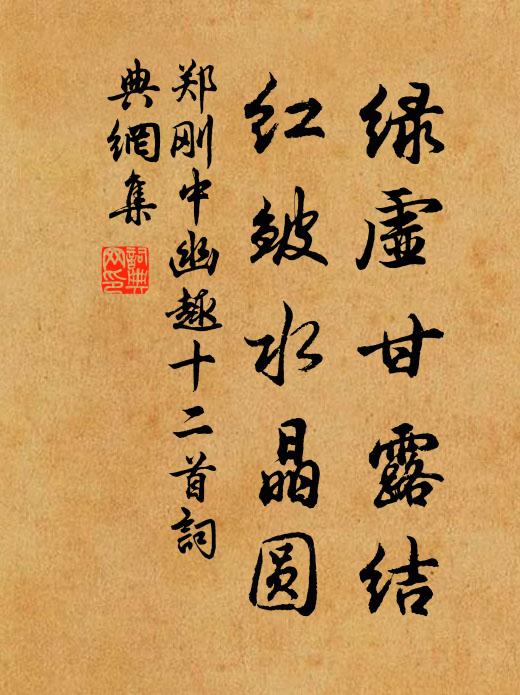 绿虚甘露结
红皱水晶圆
郑刚中幽趣十二首詞
典網集
詞典
网印